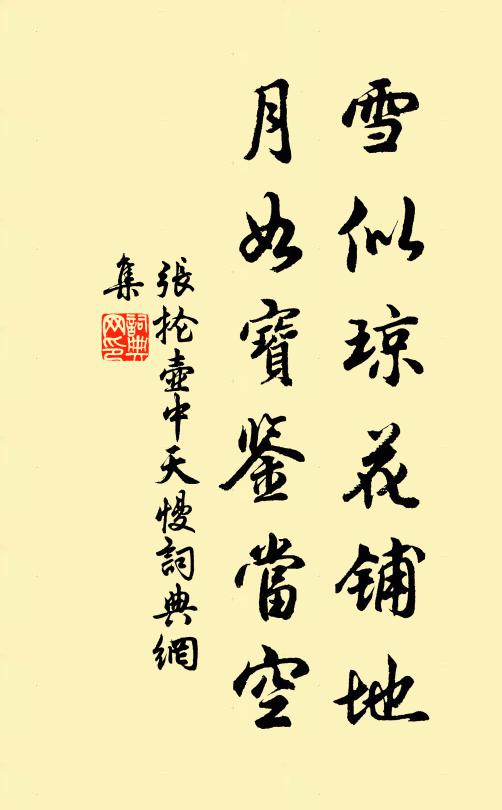 雪似琼花铺地
月如寶鉴當空
張抡壺中天慢詞典網
集
詞典
网印